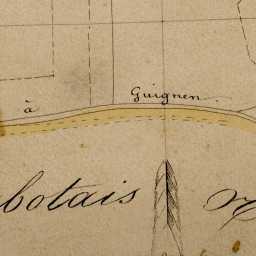 à Guignen
botais